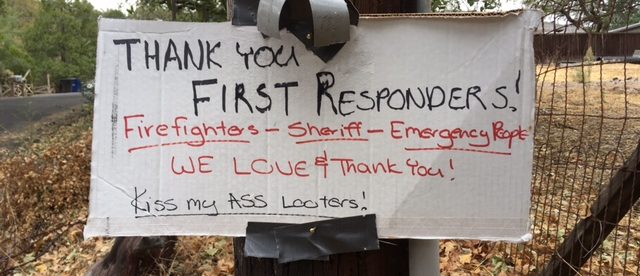 THANK YOU
FIRST RESPONDERS!
Firefighters - Sheriff - Emergency People
WE LOVE & Thank You!
Kiss my ASS Looters!